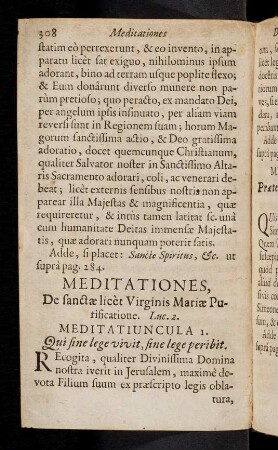 308 Meditationes
statim eò perrexerunt, & eo invento, in ap-
paratu licèt sat exiguo, nihilominus ipsum
adorant, bino ad terram usque poplite flexo;
& Eum donârunt diverso munere non pa-
rùm pretioso; quo peracto, ex mandato Dei,
per angelum ipsis insinuato, per aliam viam
reversi sunt in Regionem suam; horum Ma-
gorum sanctissima actio, & Deo gratissima
adoratio, docet quemcunque Christianum,
qualiter Salvator noster in Sanctissimo Alta-
ris Sacramento adorari, coli, ac venerari de-
beat; licèt externis sensibus nostris non ap-
pareat illa Majestas & magnificentia, quæ
requireretur, & intùs tamen latitat se unâ
cum humanitate Deitas immensæ Majesta-
tis, quæ adorari nunquam poterit satis.
Adde, si placet: Sancte Spiritus, &c. ut
suprà pag. 284.
MEDITATIONES,
De sanctæ licèt Virginis Mariæ Pu-
rificatione. Luc. 2.
MEDITATIUNCULA 1.
Qui sine lege vivit, sine lege peribit.
Recogita, qualiter Divinissima Domina
nostra iverit in Jerusalem, maximè de-
vota Filium suum ex præscripto legis obla-
tura,